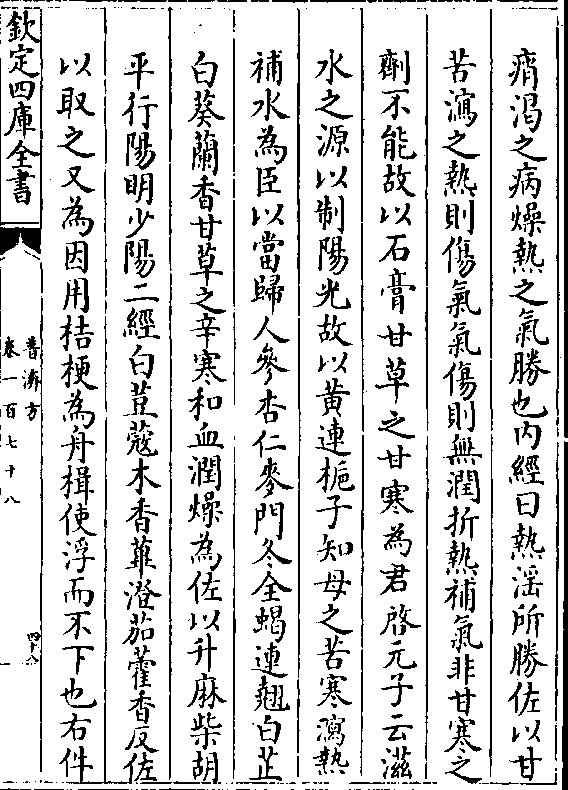 痟渴之病燥熱之氣勝也内經曰熱滛所勝佐以甘
苦瀉之熱則傷氣氣傷則無潤折熱補氣非甘寒之
劑不能故以石膏甘草之甘寒為君啓元子云滋
水之源以制陽光故以黄連梔子知母之苦寒瀉熱
補水為臣以當歸人參杏仁麥門冬全蝎連翹白芷
白葵蘭香甘草之辛寒和血潤燥為佐以升麻柴胡
平行陽明少陽二經白荳蔻木香蓽澄茄藿香反佐
以取之又為因用桔梗為舟楫使浮而不下也右件
欽定四庫全書
普濟方
卷一百七十八
四十八